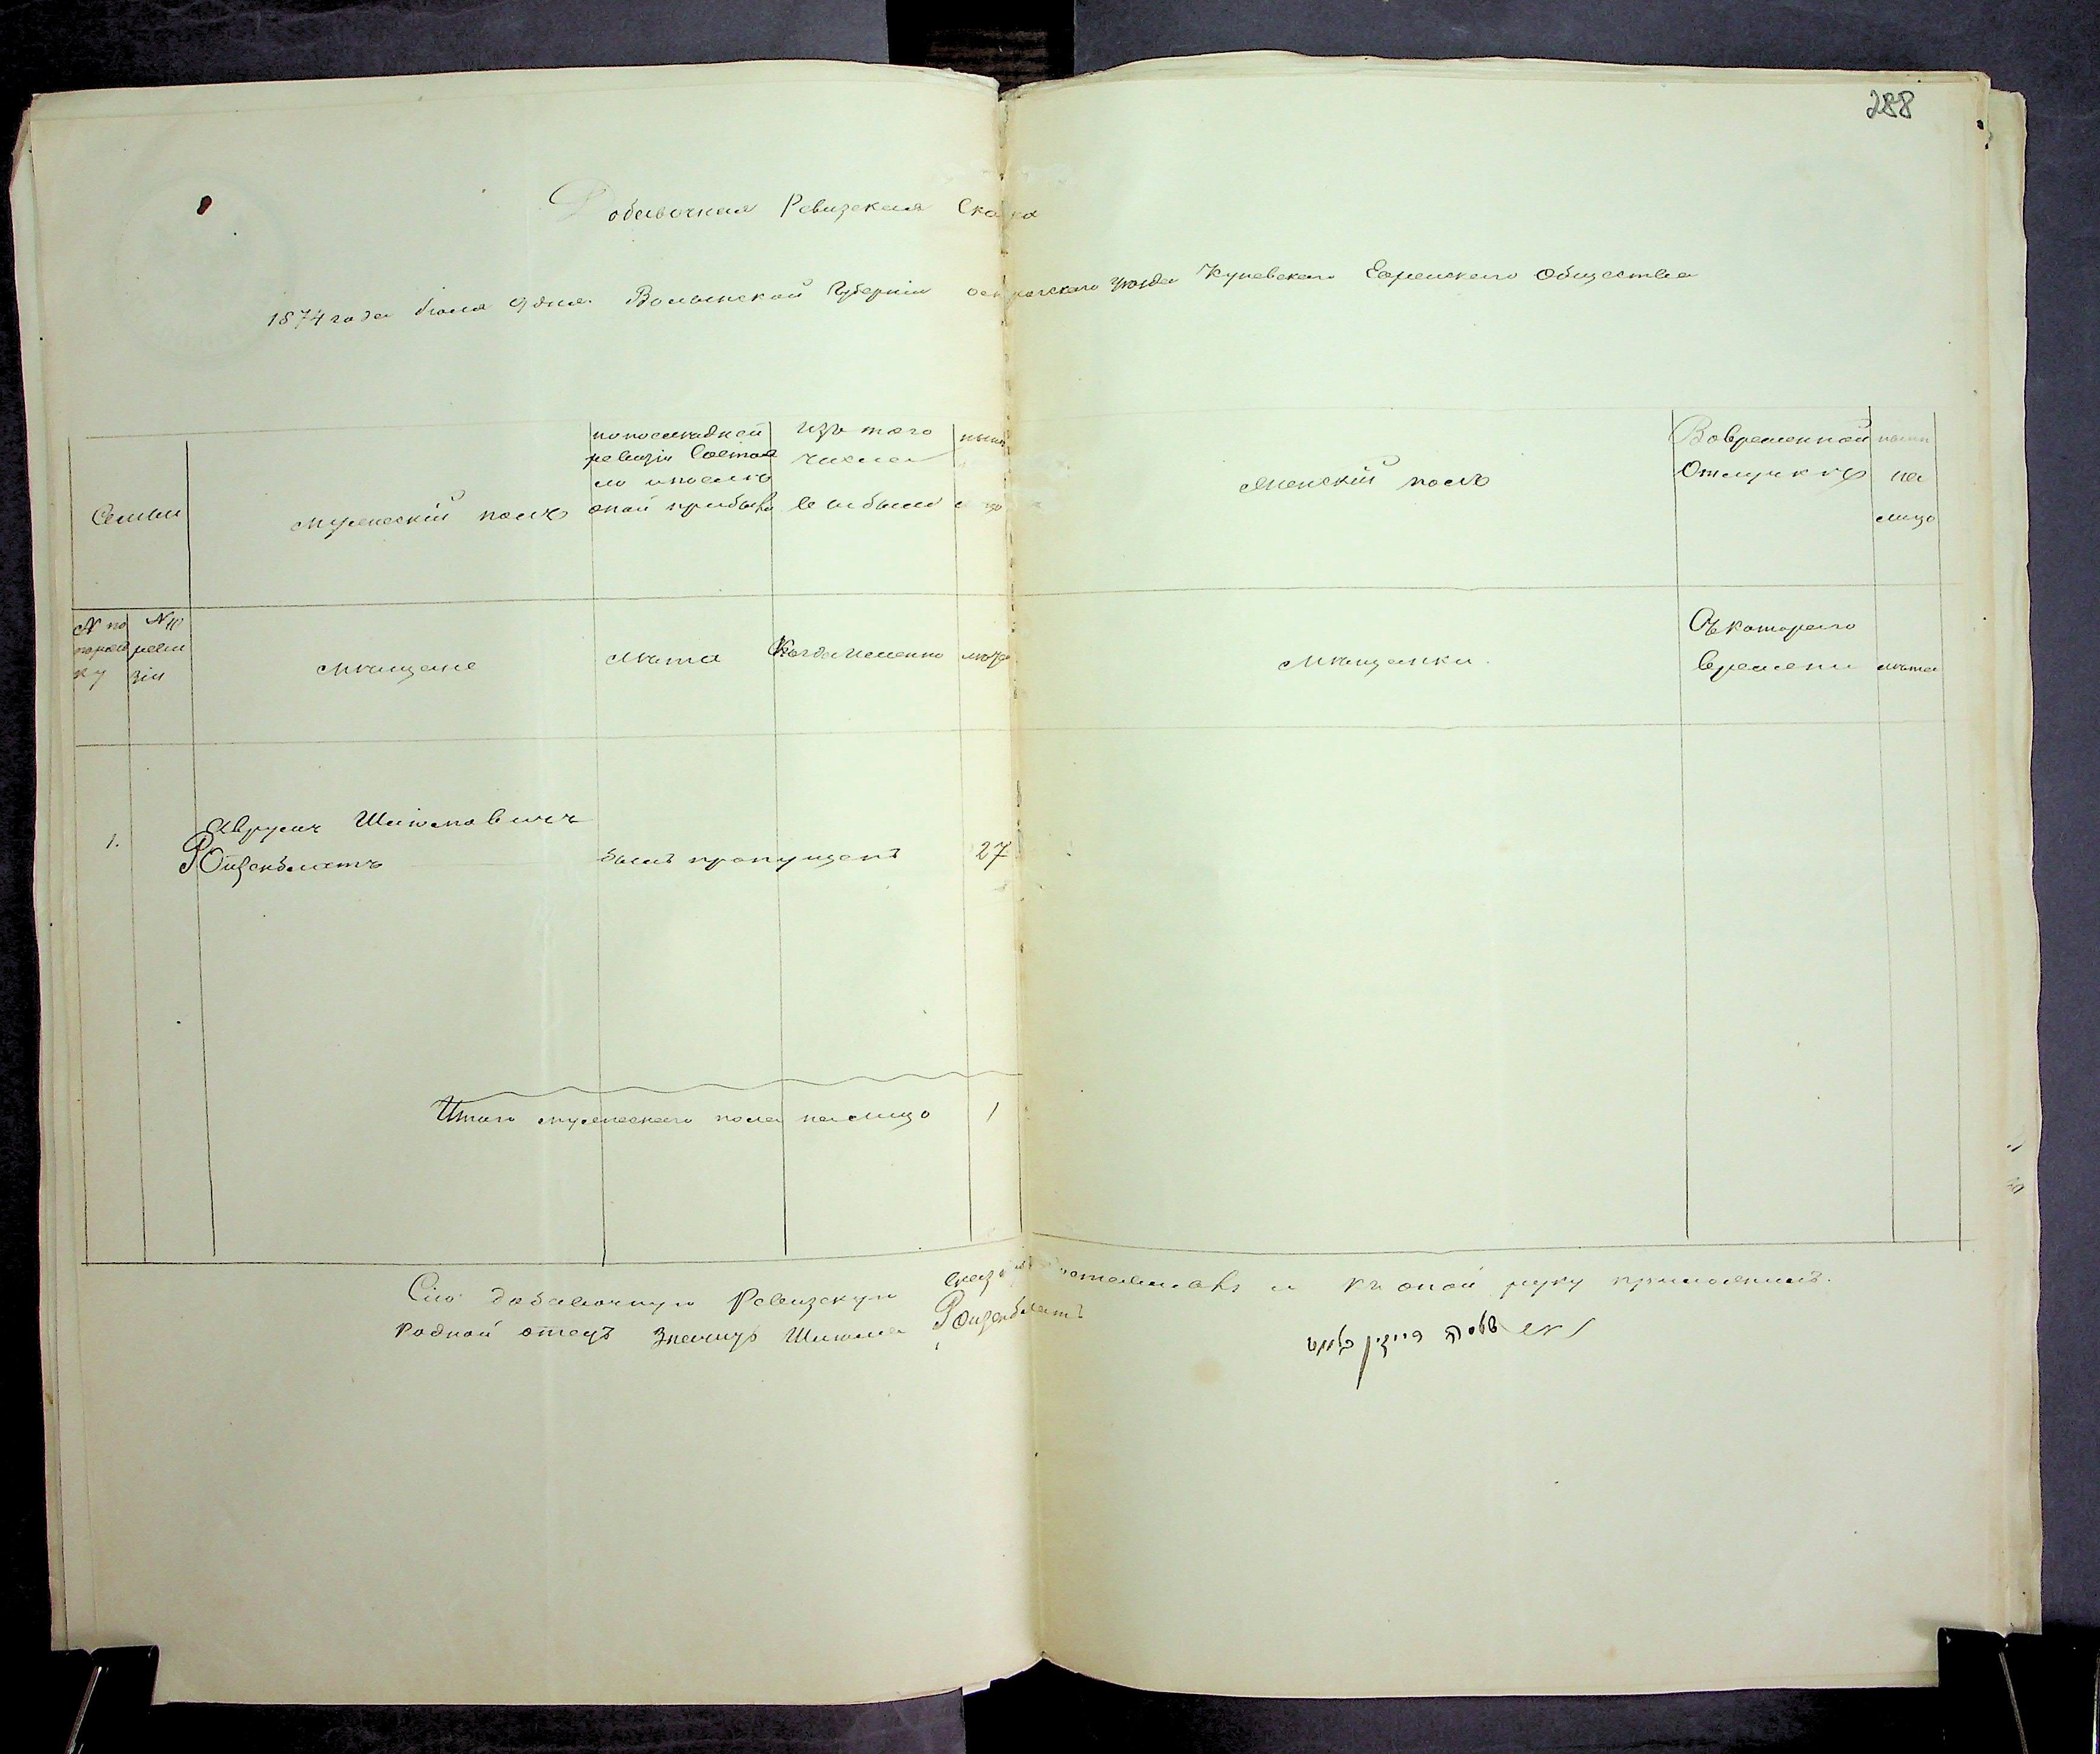 288
Добавочная Ревизская Сказка
1874 года Июля 9 дня Волынской Губерніи Острогскаго уѣзда Куневскаго Еврейскаго Общества
Семьи
мужескій полъ
по последней ревизіи Состояло и после оной прибыло
изъ того числа выбыло
ныне на лицо
женскій полъ
Вовременной Отлучкѣ
ныне на лицо
№ по порядку
№ ревизіи
мѣщане
лѣта
Когда именно
лѣта
мѣщанки.
Съ котораго времени
лѣта
1.
Аврумъ Шлиомовичъ
Ройзенблатъ
былъ пропущенъ
27
Итого мужескаго пола на лицо
1
Сію добавочную Ревизскую Сказку составилъ и къ оной руку приложилъ.
Родной отецъ Шлиома Ройзенблатъ
שלמה רייזין בלאט